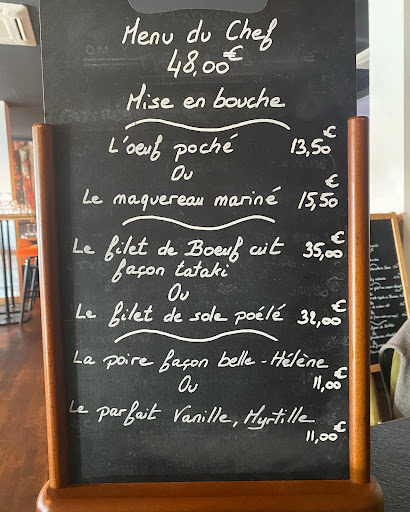 Menu du Chef
48,00€
Mise en bouche
L'oeuf poché 13,50€
Ou
Le maquereau mariné 15,50€
Le filet de Boeuf cuit 35,00€
façon tataki
Ou
Le filet de sole poélé 32,00€
La poire façon belle-Hélène
Ou 11,00€
Le parfait Vanille, Myrtille
11,00€